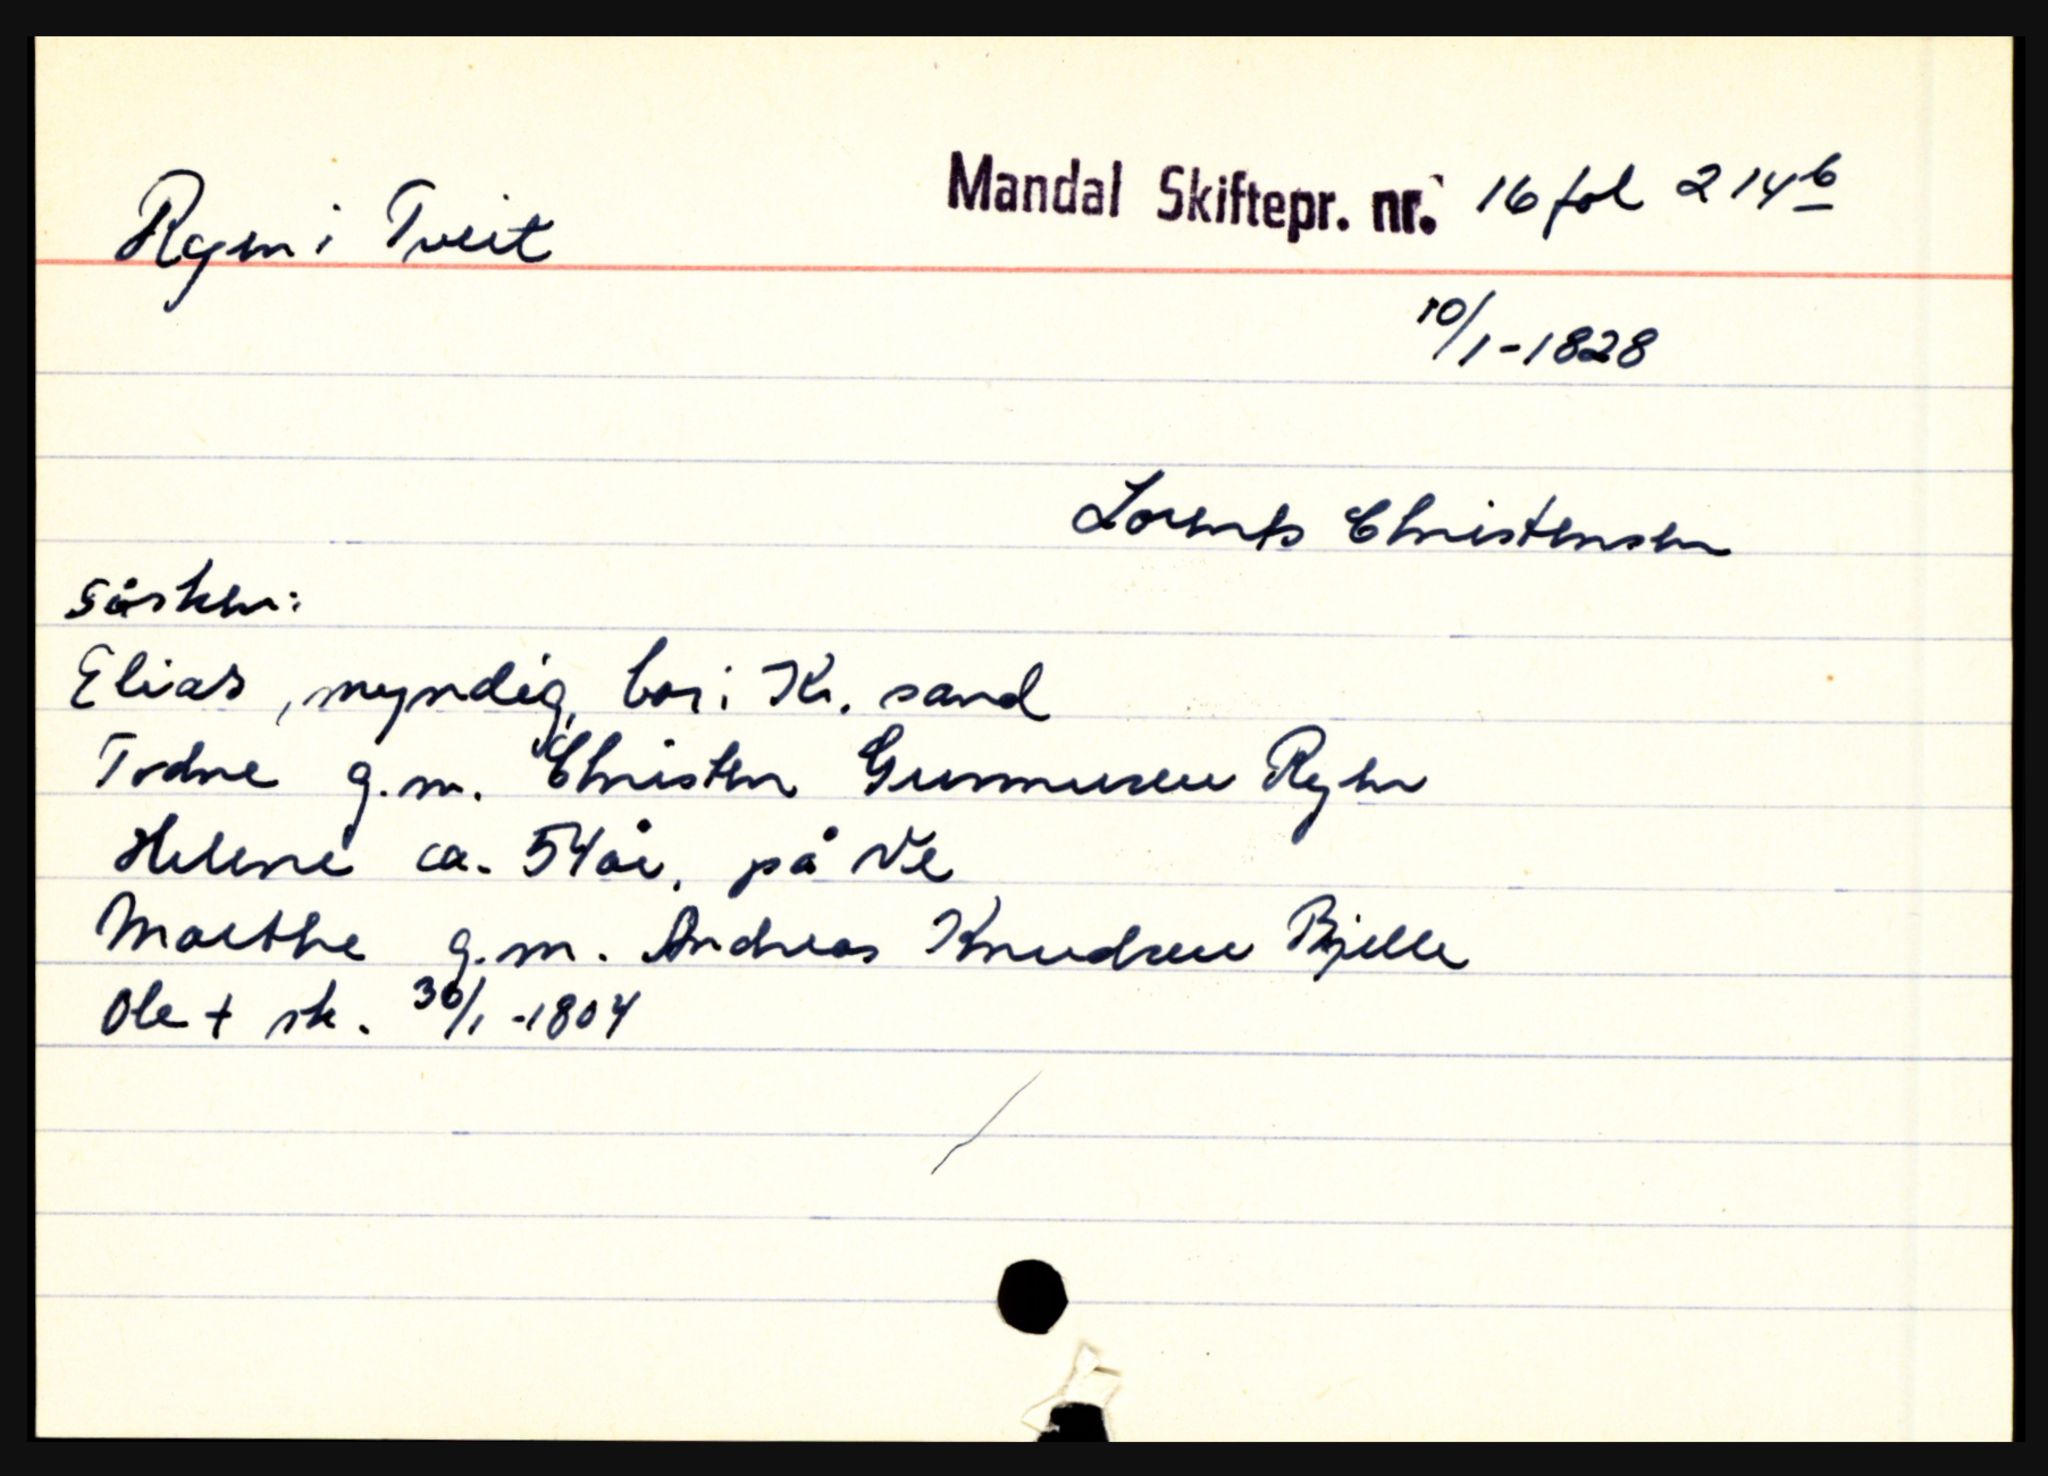 Ryen i Tveit
Mandal Skiftepr. nr. 16 fol 214b
10/1-1828
Lorents Christensen
søsken:
Elias, myndig, bor i Kr. sand
Todne g.m. Christen Gunnusen Ryen
Helene ca. 54 år, på Ve
Marthe g.m. Andreas Knudsen Bjelle
Ole + sk. 30/1-1804